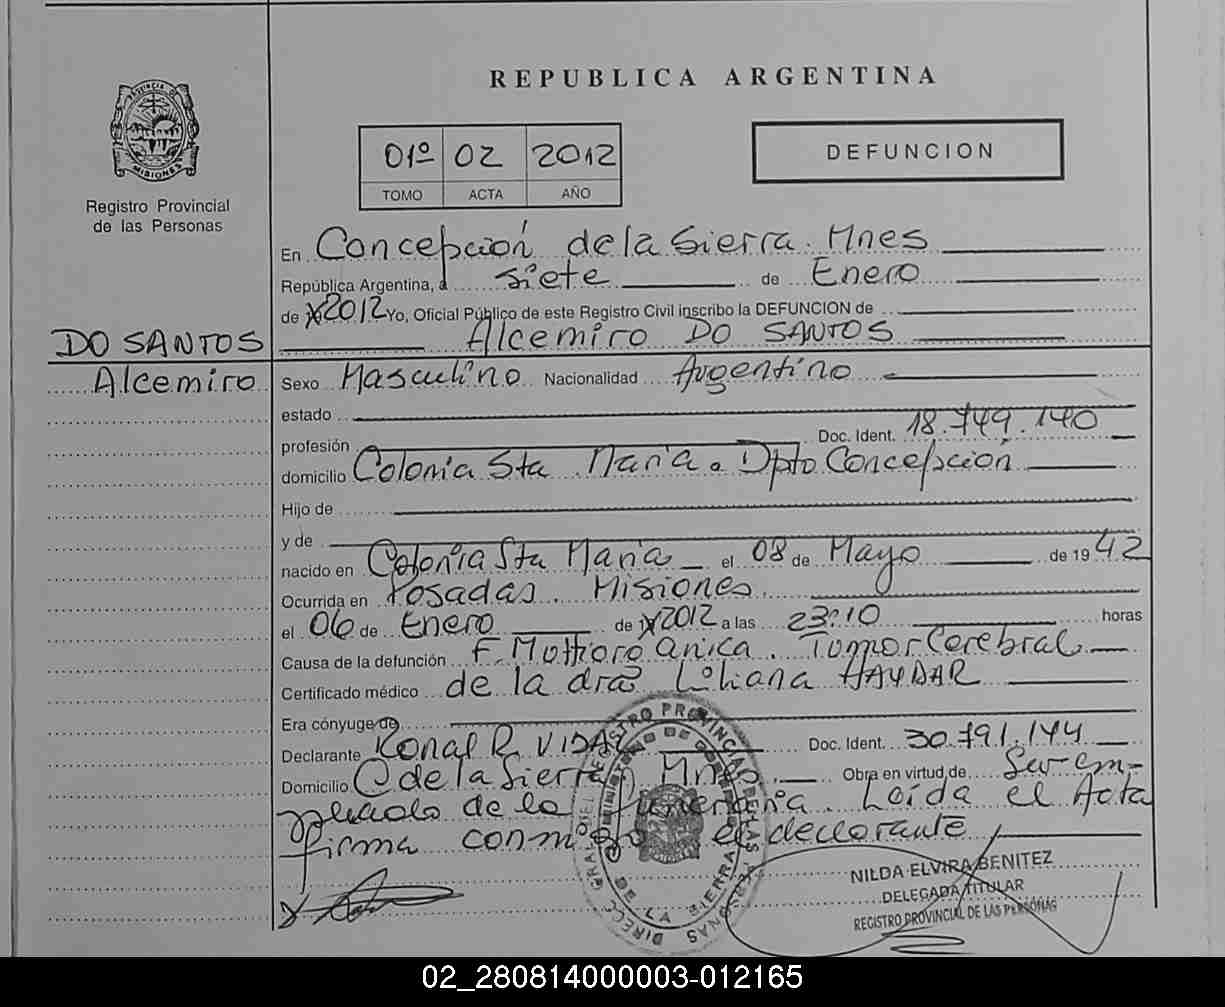 REPUBLICA ARGENTINA
PROVINCIA D
MISIONES
Registro Provincial
de las Personas
01º 02 2012
TOMO ACTA AÑO
DEFUNCION
En Concepción de la Sierra. Mnes
República Argentina, a siete de Enero
de 2012 Yo, Oficial Público de este Registro Civil inscribo la DEFUNCION de
DO SANTOS Alcemiro DO SANTOS
Alcemiro Sexo Masculino Nacionalidad Argentino
estado
profesión Doc. Ident. 18.749.140
domicilio Colonia Sta. María. Dpto Concepción
Hijo de
y de
nacido en Colonia Sta María el 08 de Mayo de 1942
Ocurrida en Posadas. Misiones
el 06 de Enero de 2012 a las 23:10 horas
Causa de la defunción F. Tumor Cerebral
Certificado médico de la dra Liliana HAYDAR
Era cónyuge de
Declarante R. VIDAL Doc. Ident. 30.791.144
Domicilio C de la Sierra, Mnes. Obra en virtud de Ser em-
pleado de la funeraria. Leída el Acta
firma conmigo el declarante
NILDA ELVIRA BENITEZ
DELEGADA TITULAR
REGISTRO PROVINCIAL DE LAS PERSONAS
02_280814000003-012165